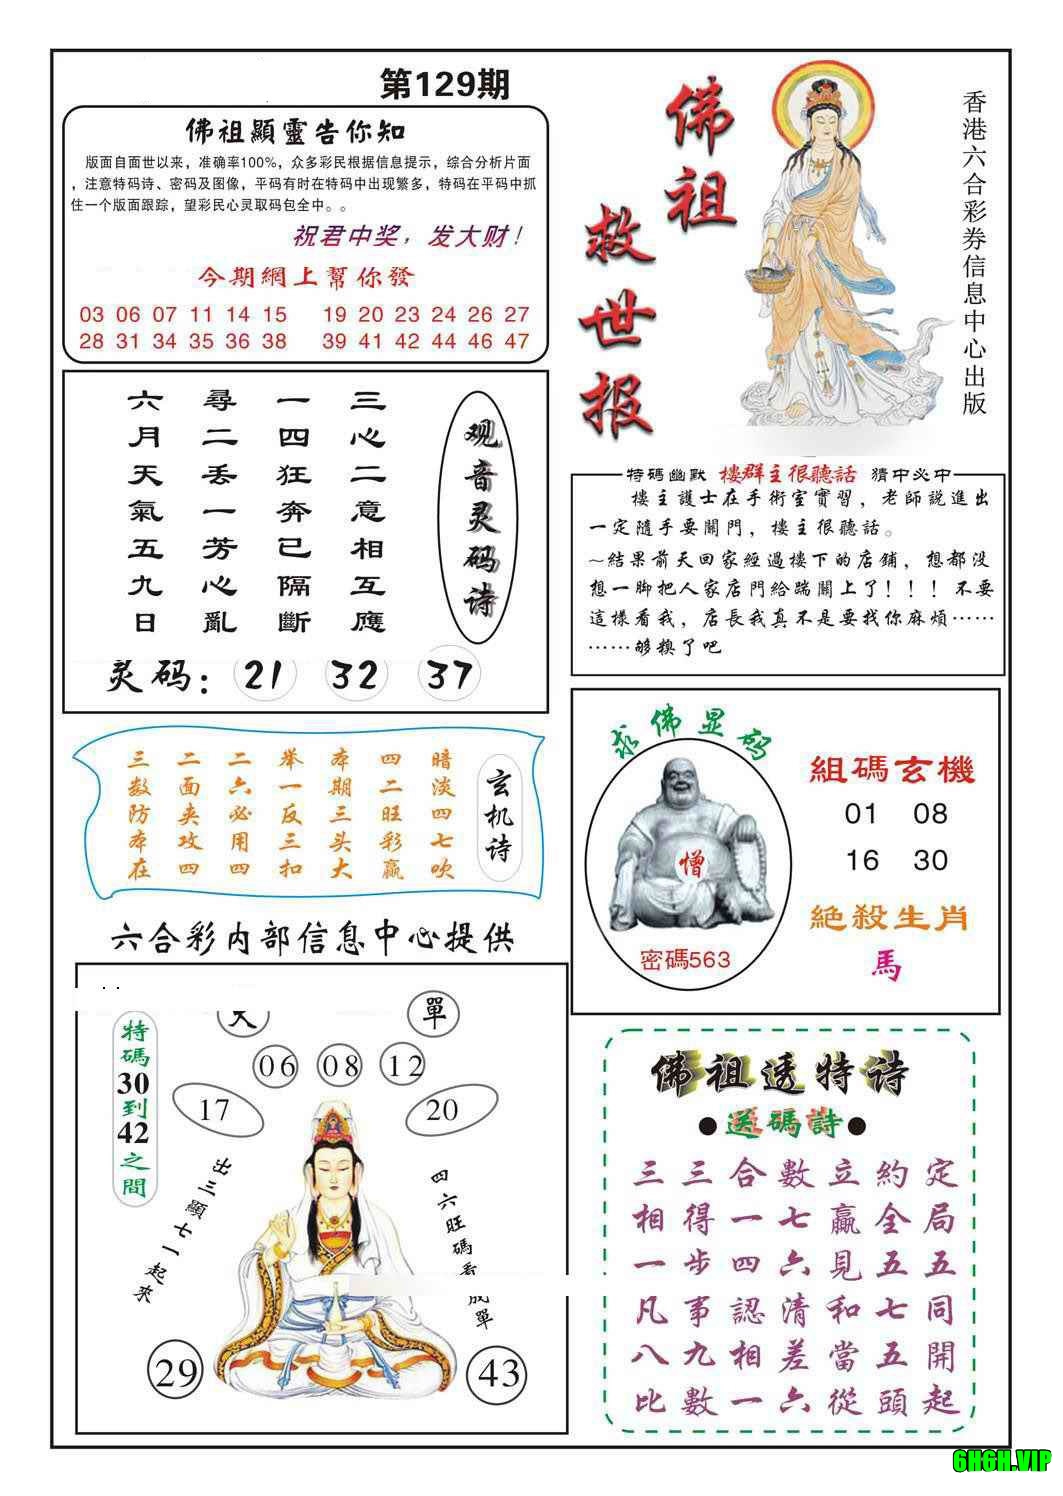 第129期
佛祖顯靈告你知
版面自面世以来，准确率100%，众多彩民根据信息提示，综合分析片面
，注意特码诗、密码及图像，平码有时在特码中出现繁多，特码在平码中抓
住一个版面跟踪，望彩民心灵取码包全中。。
祝君中奖，发大财！
今期網上幫你發
03 06 07 11 14 15 19 20 23 24 26 27
28 31 34 35 36 38 39 41 42 44 46 47
佛祖
救世报
香港六合彩券信息中心出版
观音灵码诗
三心二意相互應
一四狂奔已隔斷
尋二丢一芳心亂
六月天氣五九日
灵码：21 32 37
特碼幽默 樓群主很聽話 猜中必中
樓主護士在手術室實習，老師説進出
一定隨手要關門，樓主很聽話。
～結果前天回家經過樓下的店鋪，想都没
想一脚把人家店門給踹關上了！！！不要
這樣看我，店長我真不是要找你麻煩……
……够糗了吧
玄机诗
暗淡四七吹
四二旺彩赢
本期三头大
举一反三扣
二六必用四
二面夹攻四
三数防本在
求佛显码
憎
密碼563
組碼玄機
01 08
16 30
絕殺生肖
馬
六合彩内部信息中心提供
單
06 08 12
17 20
特碼30到42之間
出三顯七一起來
四六旺碼看成單
29 43
佛祖透特诗
●送碼詩●
三三合數立約定
相得一七贏全局
一步四六見五五
凡事認清和七同
八九相差當五開
比數一六從頭起
6H6H.VIP